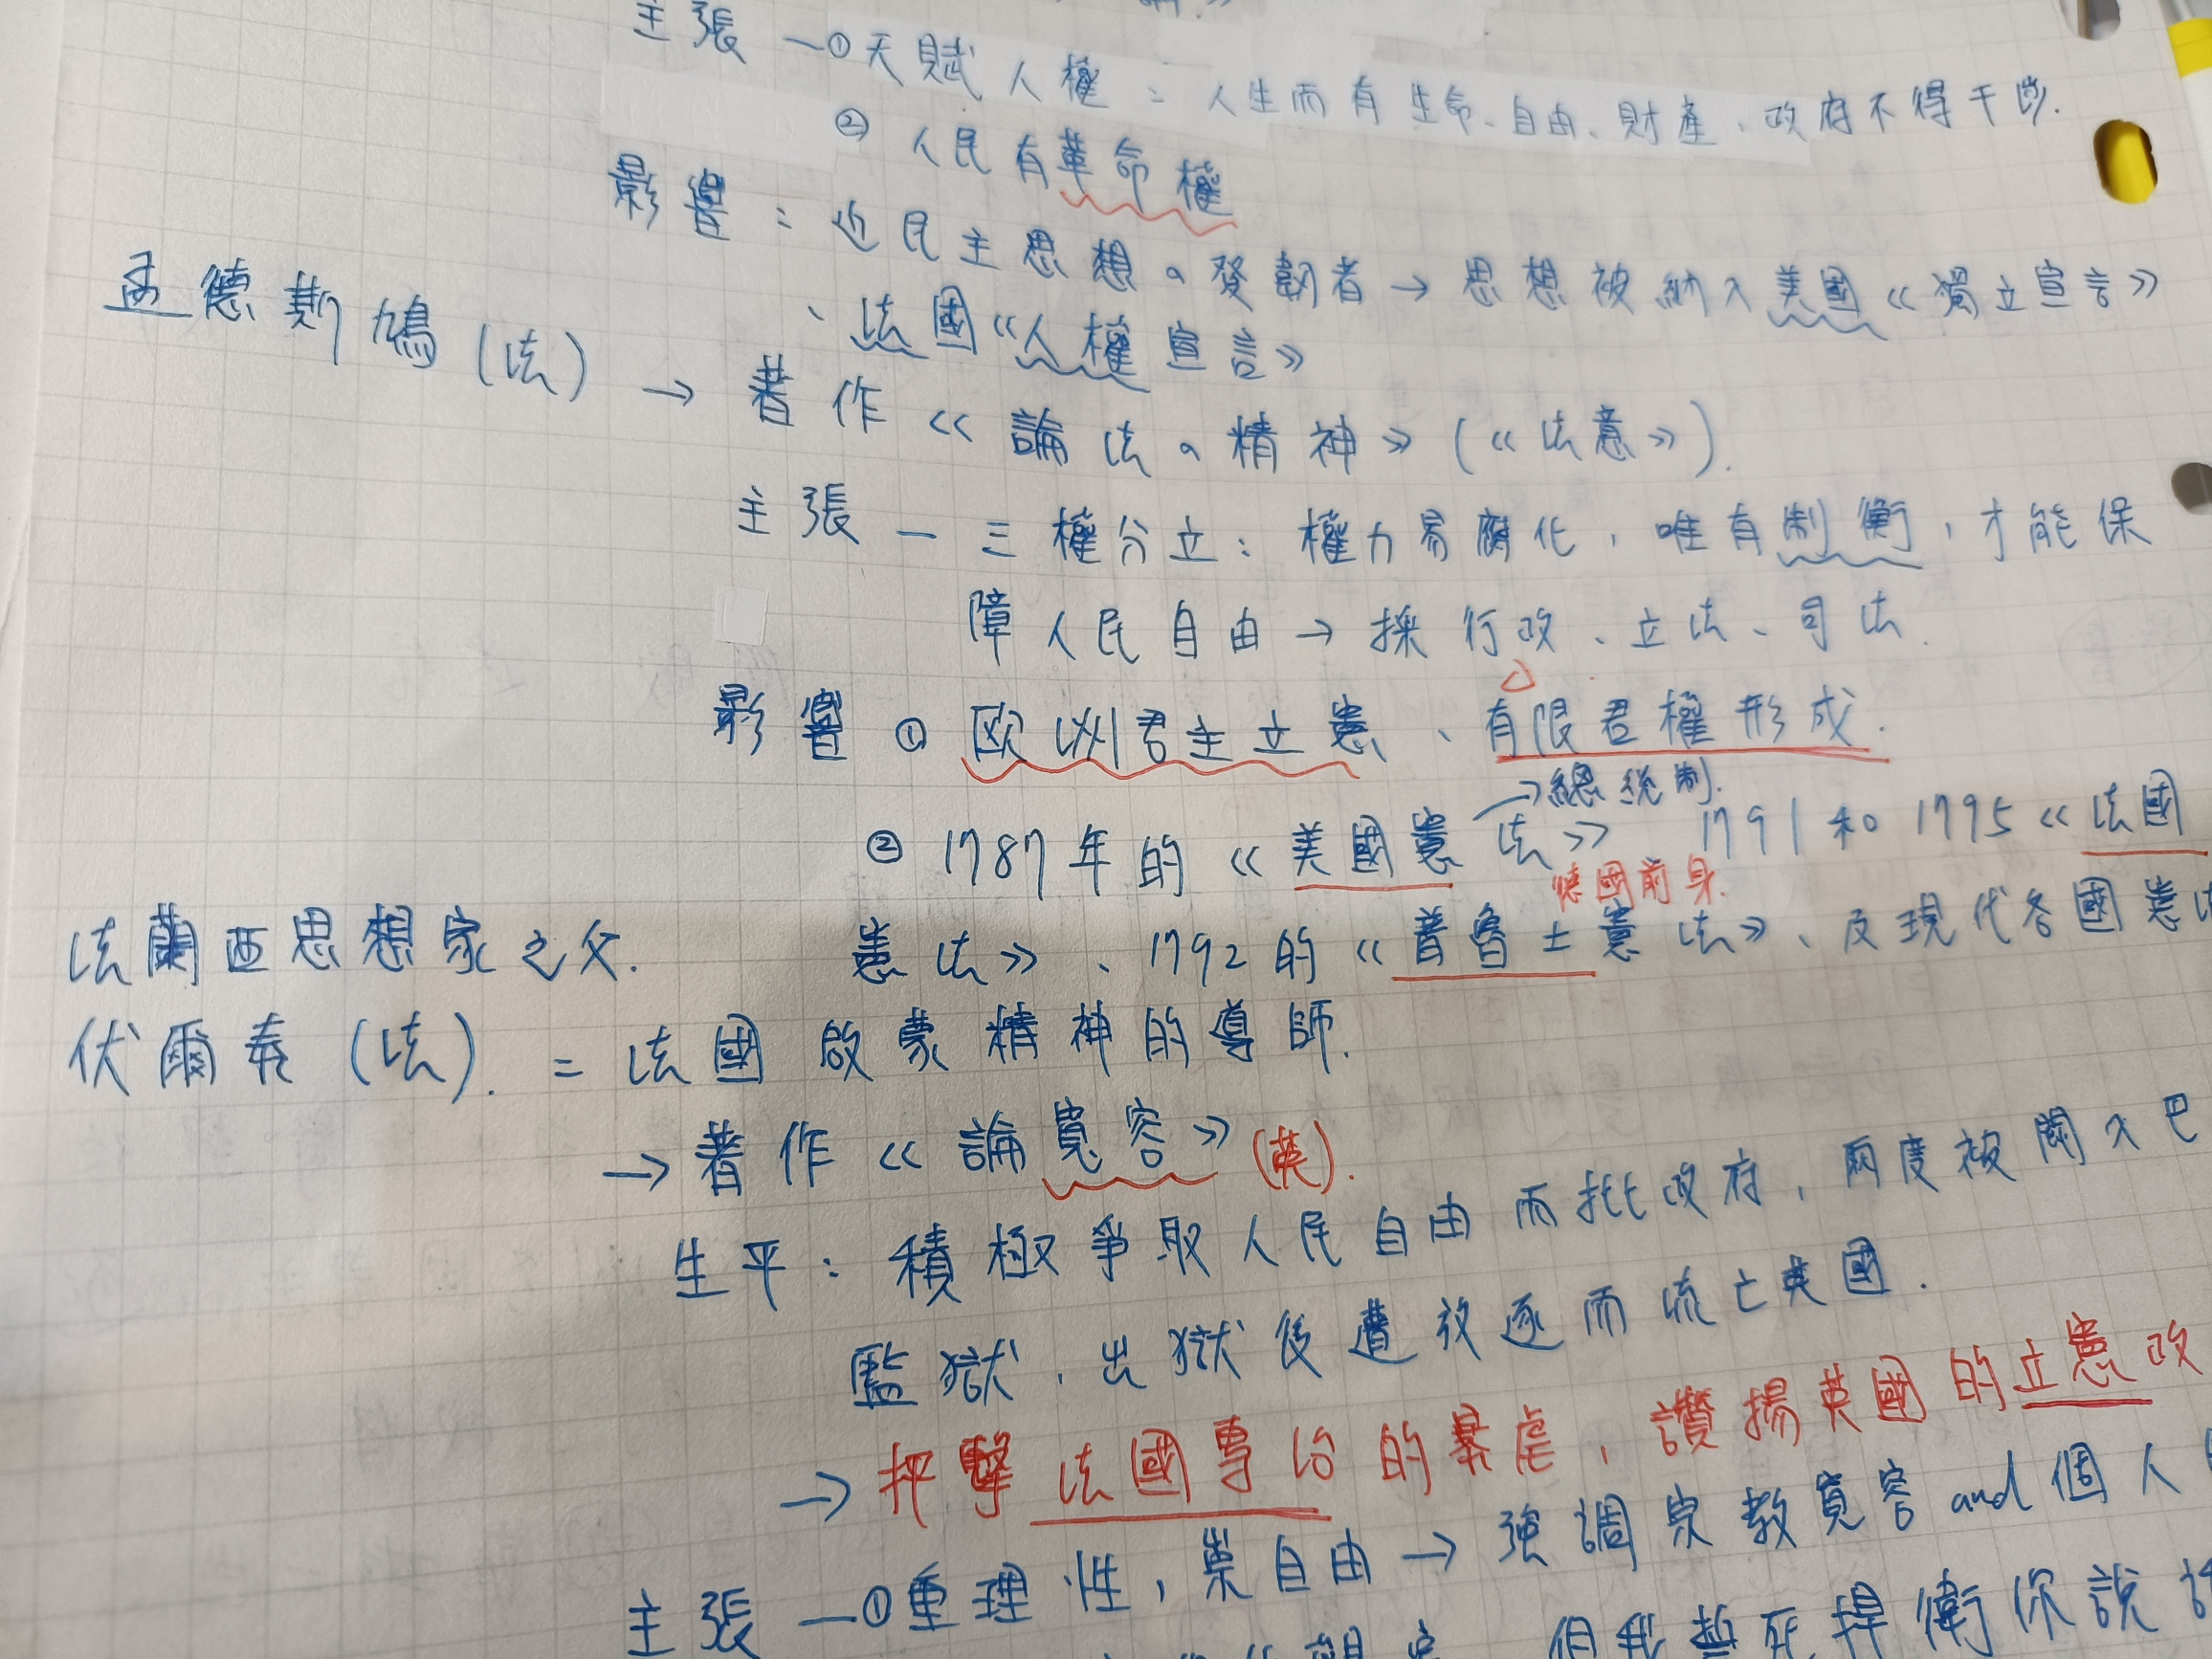 主張 — ①天賦人權：人生而有生命、自由、財產，政府不得干涉.
② 人民有革命權
影響：近民主思想の發韌者 → 思想被納入美國《獨立宣言》
、法國《人權宣言》
孟德斯鳩 (法) → 著作《論法の精神》(《法意》).
主張 — 三權分立：權力易腐化，唯有制衡，才能保
障人民自由 → 採行政、立法、司法.
影響 ① 歐洲君主立憲、有限君權形成.
→總統制.
② 1787年的《美國憲法》 1791和1795《法國
德國前身.
法蘭西思想家之父. 憲法》、1792的《普魯士憲法》、及現代各國憲法
伏爾泰 (法). = 法國啟蒙精神的導師.
→ 著作《論寬容》(英).
生平：積極爭取人民自由而批政府，兩度被關入巴
監獄，出獄後遭放逐而流亡英國.
→ 抨擊法國專治的暴虐，讚揚英國的立憲政
主張 — ①重理性，崇自由 → 強調宗教寬容 and 個人
但我誓死捍衛你說話